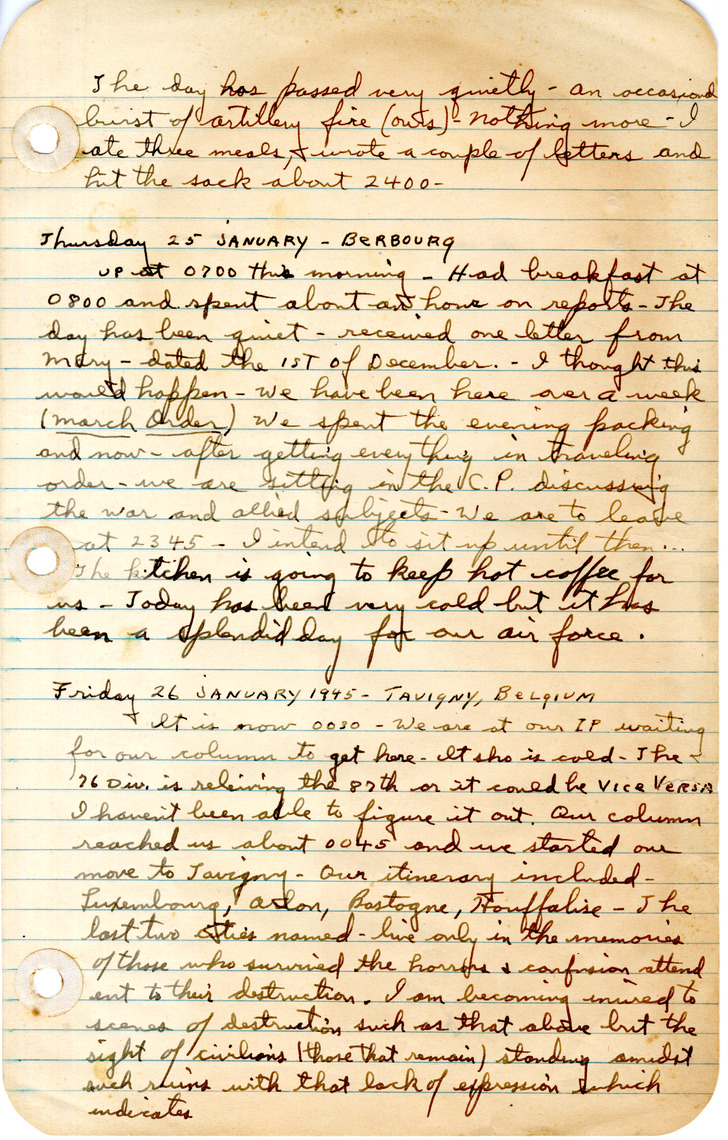 The day has passed very quietly - an occasional
burst of artillery fire (ours) - nothing more - I
ate three meals, & wrote a couple of letters and
hit the sack about 2400 -
Thursday 25 JANUARY - BERBOURG
UP at 0700 this morning - Had breakfast at
0800 and spent about an hour on reports - The
day has been quiet - received one letter from
Mary - dated the 1ST of December. - I thought this
would happen - We have been here over a week
(march Order) We spent the evening packing
and now - after getting everything in traveling
order - we are sitting in the C.P. discussing
the war and allied subjects - We are to leave
at 2345 - I intend to sit up until then...
The kitchen is going to keep hot coffee for
us - Today has been very cold but it has
been a splendid day for our air force.
Friday 26 JANUARY 1945 - TAVIGNY, BELGIUM
It is now 0030 - We are at our IP waiting
for our column to get here - It sho is cold - The
76 Div. is releiving the 87th or it could be VICE VERSA
I haven't been able to figure it out. Our column
reached us about 0045 and we started our
move to Tavigny - Our itinerary included -
Luxembourg, Arlon, Bastogne, Houffalise - The
last two cities named - live only in the memories
of those who survived the horrors & confusion attend
ent to their destruction. I am becoming inured to
scenes of destruction such as that above but the
sight of civilians (those that remain) standing amidst
such ruins with that lack of expression which
indicates